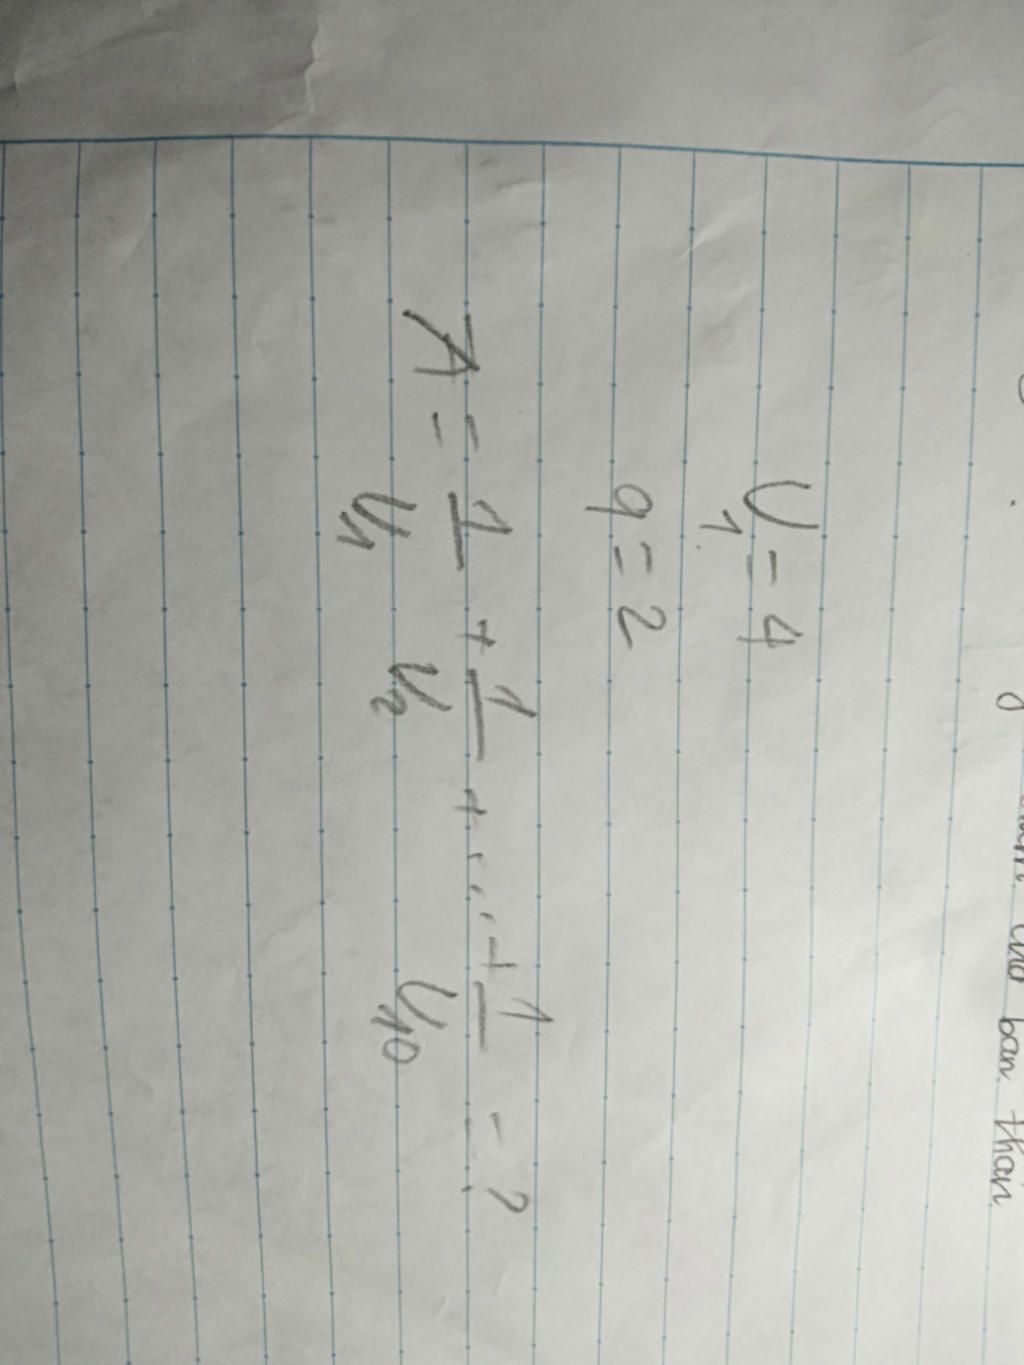 cho bản thân
U₁ = 4
q = 2
A = 1/U₁ + 1/U₂ + ... + 1/U₁₀ = ?